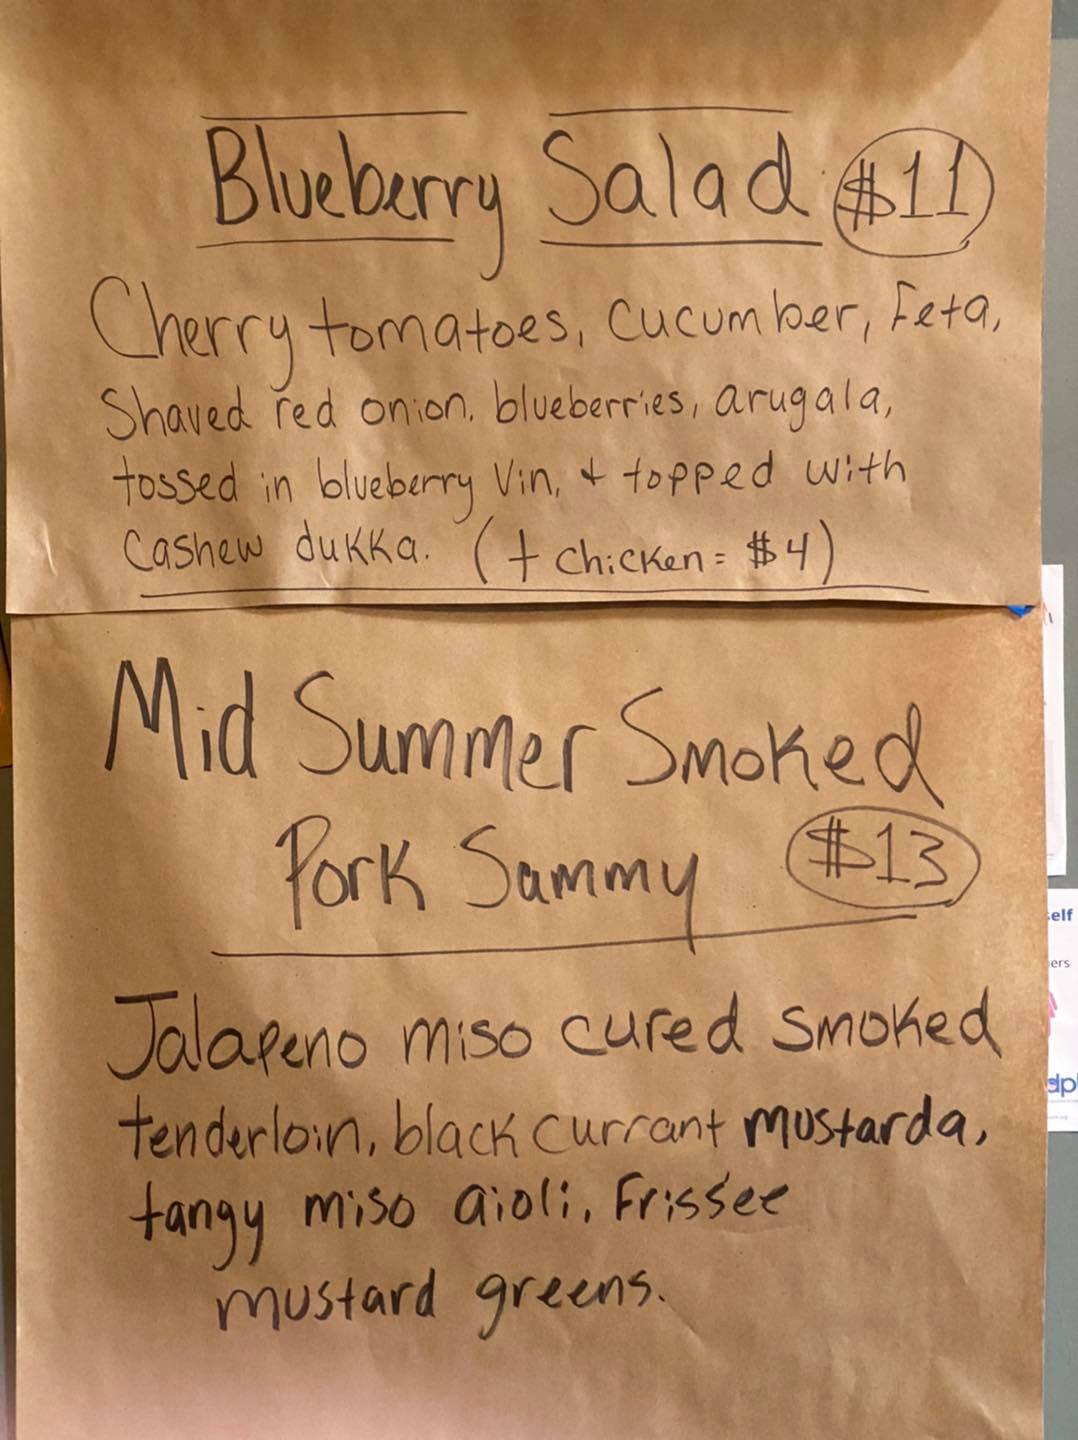 Blueberry Salad $11
Cherry tomatoes, cucumber, Feta,
Shaved red onion, blueberries, arugala,
tossed in blueberry Vin, & topped with
Cashew dukka. (+ chicken = $4)
Mid Summer Smoked
Pork Sammy $13
Jalapeno miso cured smoked
tenderloin, black currant mustarda,
tangy miso aioli, Frissee
mustard greens.
elf
ers
dpl